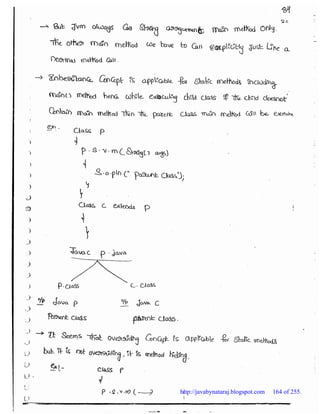 → But Jvm always Call String argument main method only.
The other main method we have to Call explicitly just like a
normal method Call.
→ Inheritance Concept is applicable for static methods including
main() method hence while executing child class if the child doesnot
Contain main method then the parent class main method will be executed
Ex:- class P
{
p.s.v.m(String[] args)
{
S.o.pln("parent class");
}
}
class C extends P
{
}
Javac P.java
P.class C.class
O/P Java P O/P Java C
Parent class parent class.
→ It Seems that overriding Concept is applicable for static methods
but it is not overriding, it is method hiding.
Ex:- class P
{
P.S.V.M(—)
http://javabynataraj.blogspot.com 164 of 255.